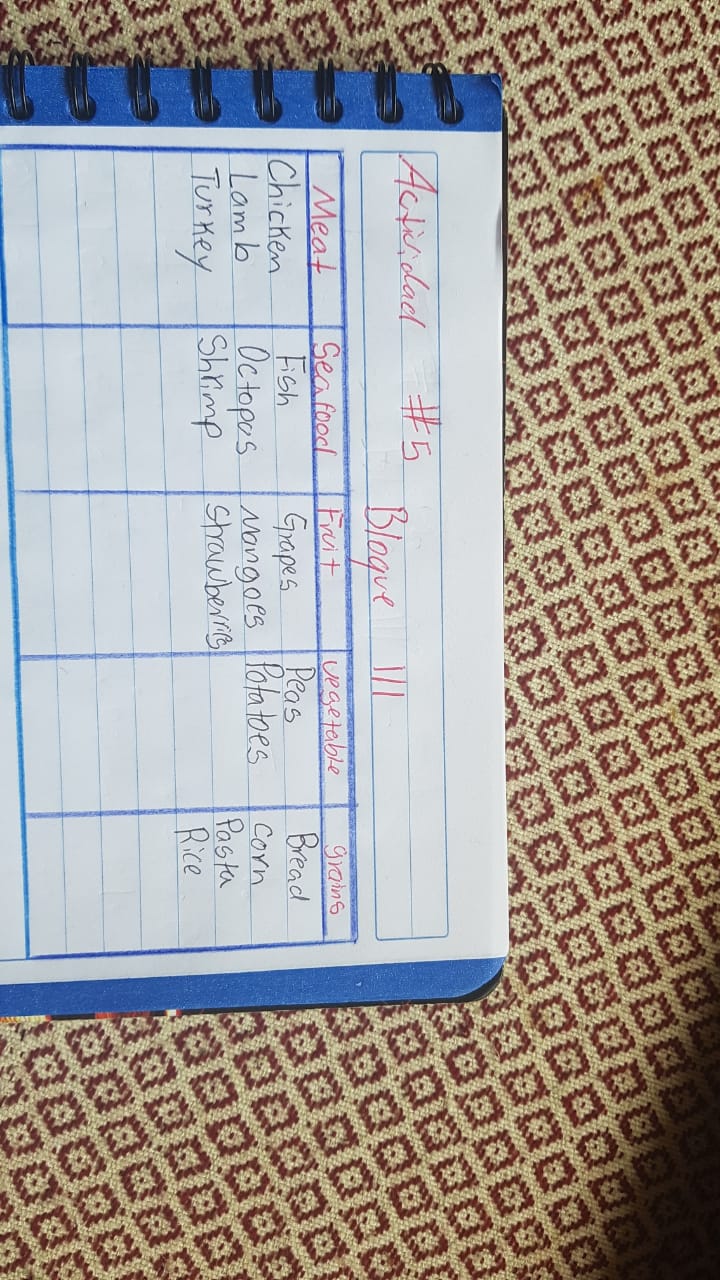 Actividad #5 Bloque III
Meat Seafood Fruit vegetable grains
Chicken Fish Grapes Peas Bread
Lamb Octopos Mangoes Potatoes Corn
Turkey Shrimp Strawberries Pasta
Rice